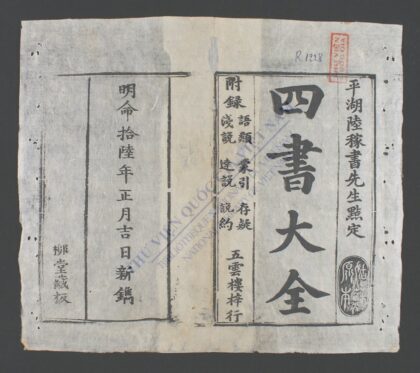 R.1228
平湖陸稼書先生點定
四書大全
附錄
語類 蒙引 存疑
淺說 達說 說約
五雲樓梓行
明命拾陸年正月吉日新鐫
柳堂藏板
THƯ VIỆN QUỐC GIA VIỆT NAM